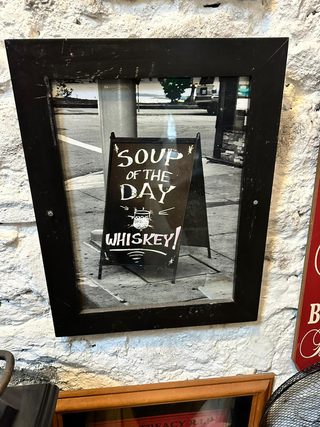 SOUP
OF THE
DAY
WHISKEY!